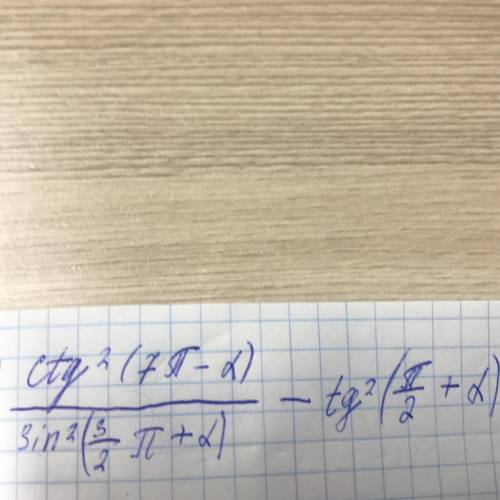 ctg²(7π-α)
sin²(3/2 π+α) - tg²(π/2+α)